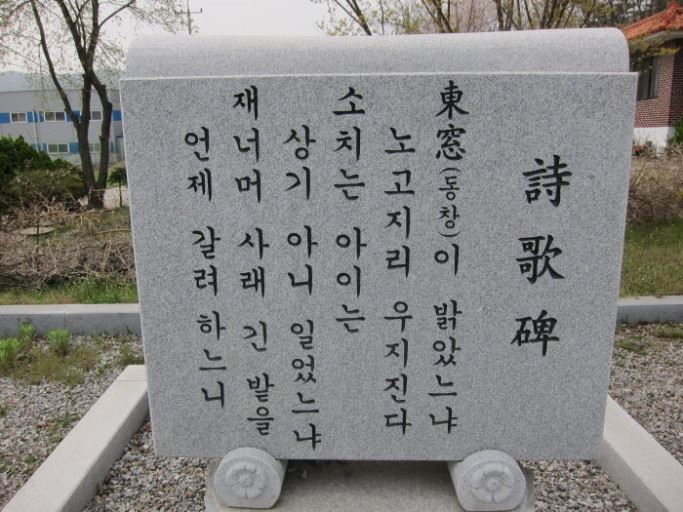 詩歌碑
東窓(동창)이 밝았느냐
노고지리 우지진다
소치는 아이는
상기 아니 일었느냐
재너머 사래 긴 밭을
언제 갈려 하느니